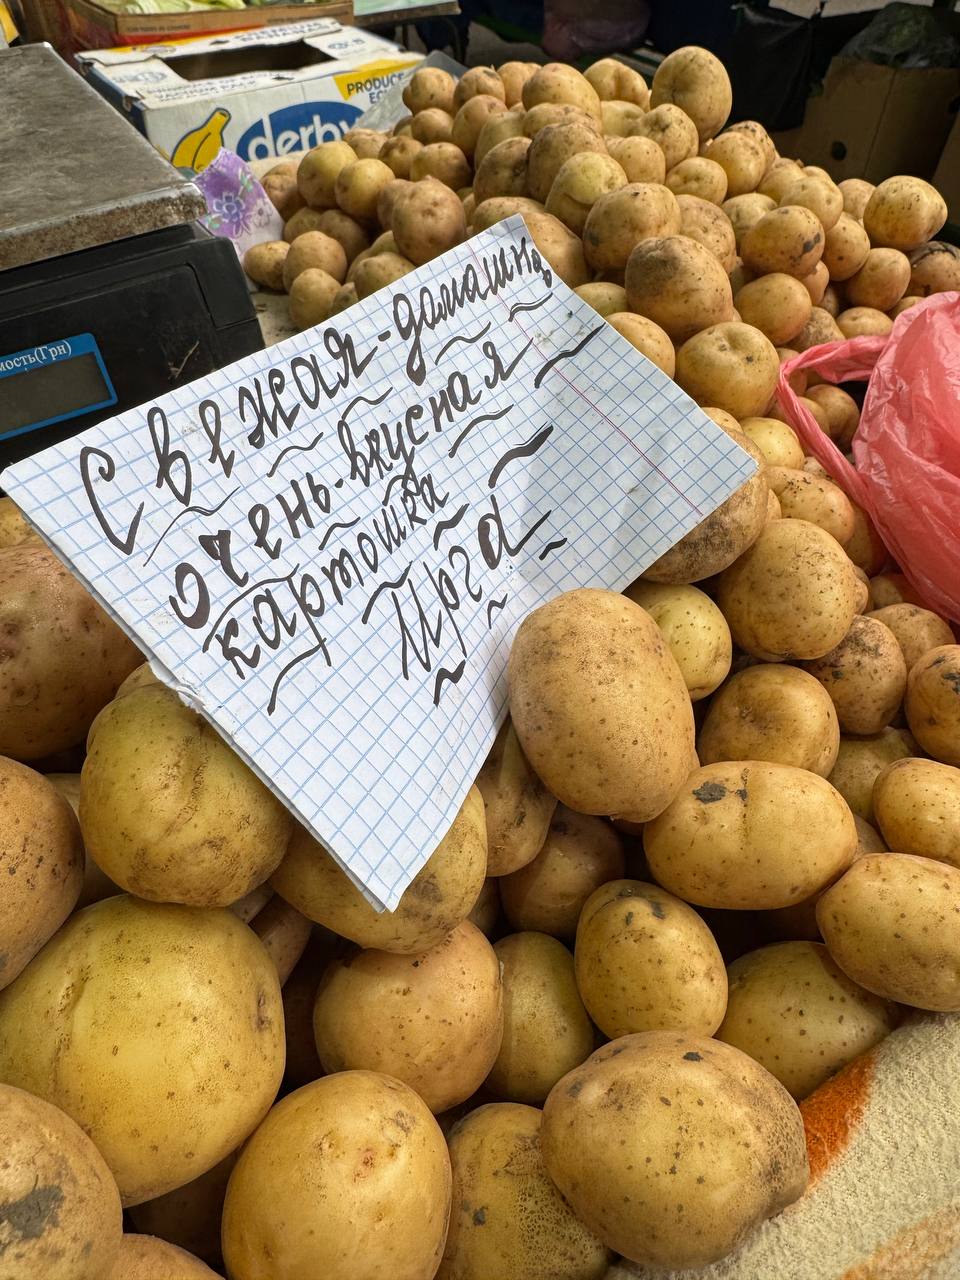 PRODUCE
derby
мость(Грн)
Свежая-домашня
очень-вкусная
картошка
Ирга